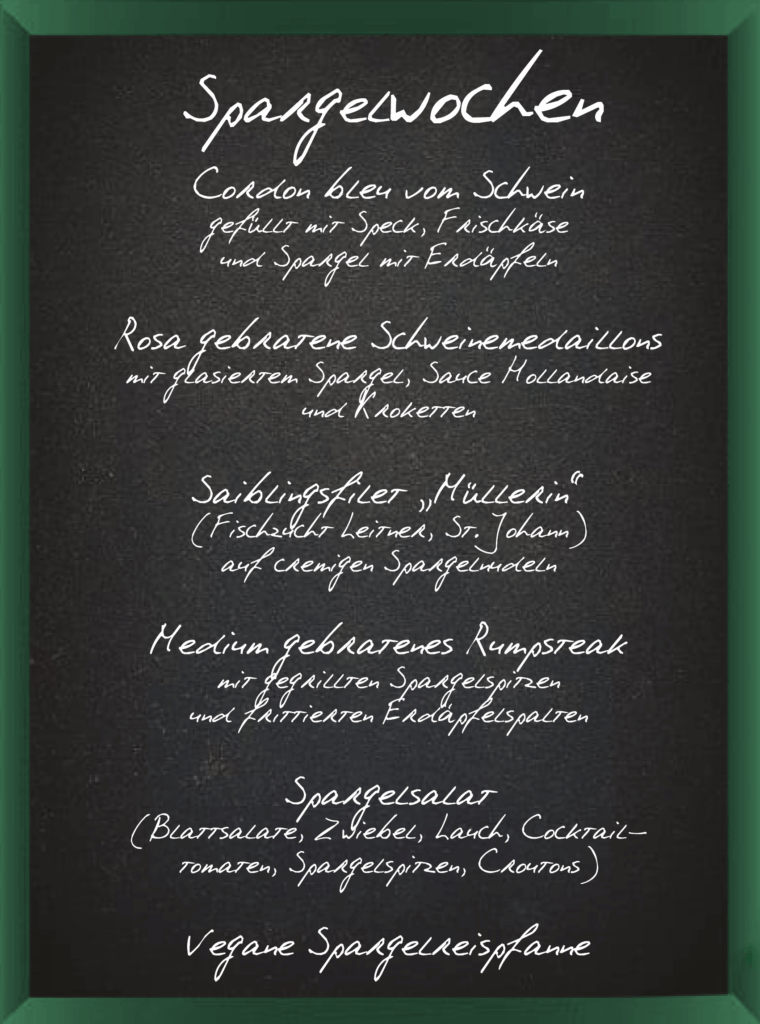 Spargelwochen
Cordon bleu vom Schwein
gefüllt mit Speck, Frischkäse
und Spargel mit Erdäpfeln
Rosa gebratene Schweinemedaillons
mit glasiertem Spargel, Sauce Hollandaise
und Kroketten
Saiblingsfilet „Müllerin“
(Fischzucht Leitner, St. Johann)
auf cremigen Spargelnudeln
Medium gebratenes Rumpsteak
mit gegrillten Spargelspitzen
und frittierten Erdäpfelspalten
Spargelsalat
(Blattsalate, Zwiebel, Lauch, Cocktail-
tomaten, Spargelspitzen, Croutons)
Vegane Spargelreispfanne